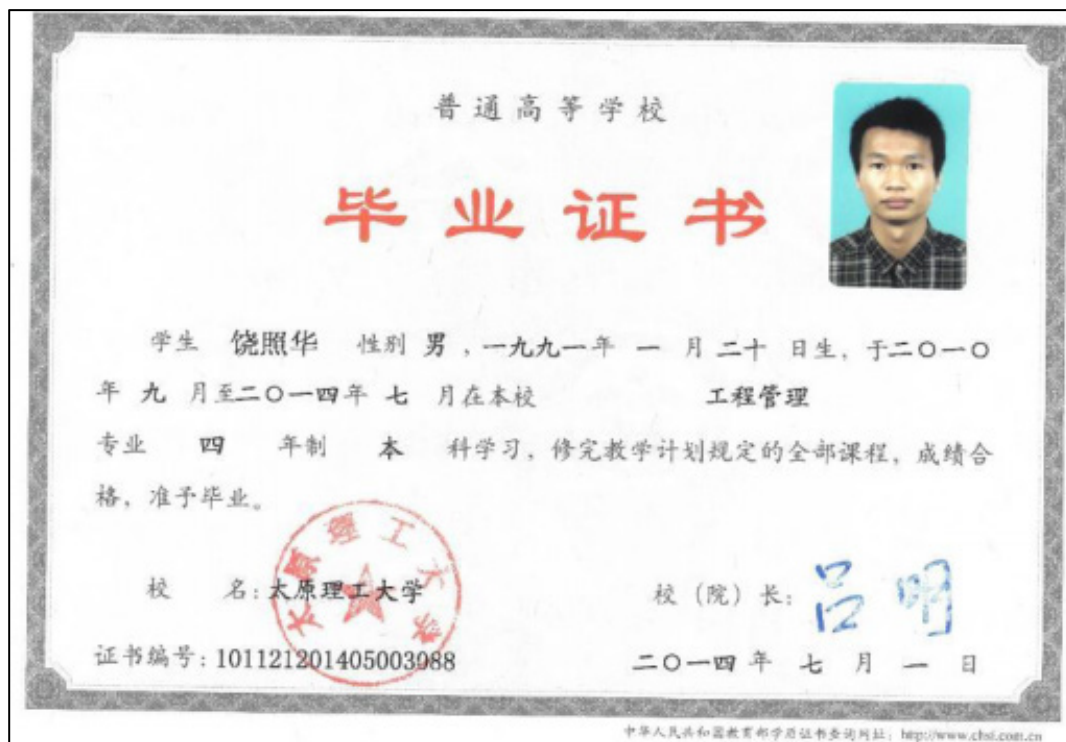 普通高等学校
毕业证书
学生 饶照华 性别 男，一九九一年 一 月 二十 日生，于二〇一〇
年 九 月至二〇一四年 七 月在本校 工程管理
专业 四 年制 本 科学习，修完教学计划规定的全部课程，成绩合
格，准予毕业。
太原理工大学
校 名：太原理工大学 校（院）长：吕明
证书编号：101121201405003988 二〇一四年 七 月 一 日
中华人民共和国教育部学历证书查询网址：http://www.chsi.com.cn